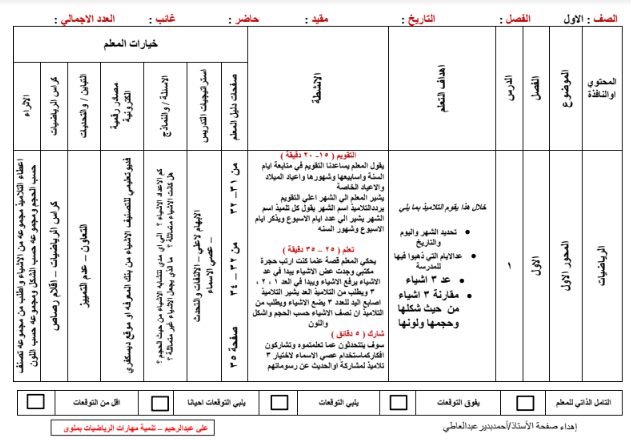 الصف : الاول
الفصل :
التاريخ :
مقيد :
حاضر :
غائب :
العدد الاجمالي :
المحتوي
اوالنافذة
الموضوع
الفصل
الدرس
اهداف التعلم
الانشطة
خيارات المعلم
صفحات دليل المعلم
استراتيجيات التدريس
الاسئلة / والنماذج
مصادر رقمية
الكترونية
التباين / والتحديات
كراس الرياضيات
الاثراء
الرياضيات
المحور الاول
الاول
خلال هذا يقوم التلاميذ بما يلي
تحديد الشهر واليوم
والتاريخ
عدالايام التي ذهبوا فيها
للمدرسة
عد ٣ اشياء
مقارنة ٣ اشياء
من حيث شكلها
وحجمها ولونها
التقويم ( ١٥- ٢٠ دقيقة )
يقول المعلم يساعدنا التقويم في متابعة ايام
السنة واسابيعها وشهورها واعياد الميلاد
والاعياد الخاصة
يشير المعلم الي الشهر اعلي التقويم
يرددالتلاميذ اسم الشهر يقول كل تلميذ اسم
الشهر يشير الي عدد ايام الاسبوع ويذكر ايام
الاسبوع وشهور السنه
تعلم ( ٢٥ – ٣٥ دقيقة )
يحكي المعلم قصة عندما كنت ارتب حجرة
مكتبي وجدت بعض الاشياء يبدا في عد
الاشياء يرفع الاشياء ويبدا في العد ١ ، ٢ ،
٣ ويطلب من التلاميذ العد يشير التلاميذ
اصابع اليد للعدد ٣ يضع الاشياء ويطلب من
التلاميذ ان نصف الاشياء حسب الحجم واشكل
واللون
شارك ( ٥ دقائق )
سوف يتحدثون عما تعلمتموه وتشاركون
افكاركماستخدام عصي الاسماء لاختيار ٣
تلاميذ لمشاركة اوالحديث عن رسوماتهم
من ٣١- ٣٢
من ٣٢- ٣٤
صفحة ٣٥
الابهام لاعلي – الالتفات والتحدث
– عصي الاسماء
كم الاعداد الاشياء ؟ الي اي مدي تتشابه الاشياء من حيث الحجم ؟
هل كانت الاشياء متماثلة ؟ ما الذي يجعل الاشياء غير متماثلة ؟
فديوتعليمي للتصنيف الاشياء من بنك المعرفه او موقع ديسكفري
التعاون – عدم التمييز
كراس الرياضيات – اقلام رصاص
اعطاء التلاميذ مجموعه من الاشياء واطلب من مجموعه تصنف
حسب الحجم ومجموعه حسب الشكل ومجموعه حسب اللون
التامل الذاتي للمعلم
يفوق التوقعات
يلبي التوقعات
يلبي التوقعات احيانا
اقل من التوقعات
إهداء صفحة الأستاذ/أحمدبدير عبدالعاطي
على عبدالرحيم – تنمية مهارات الرياضيات بملوى